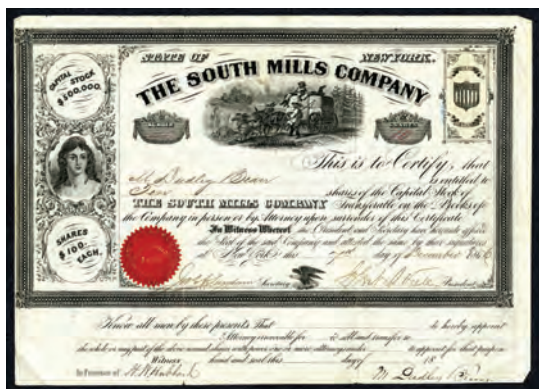 STATE OF NEW YORK.
THE SOUTH MILLS COMPANY
CAPITAL STOCK
$500,000.
SHARES
$100.
EACH.
This is to Certify, that
M. Dudley Bean is entitled to
Ten shares of the Capital Stock of
THE SOUTH MILLS COMPANY Transferable on the Books of
the Company in person or by Attorney upon surrender of this Certificate
In Witness Whereof the President and Secretary have hereunto affixed
the Seal of the said Company and attested the same by their signatures
at New York this day of December 186
Secretary President
Know all men by these presents That do hereby appoint
Attorney irrevocable for to sell and transfer
the whole or any part of the above named shares with power one or more attorneys under to appoint for that purpose
Witness hand and seal this day of 18
In Presence of H. W. Hubbard M Dudley Bean